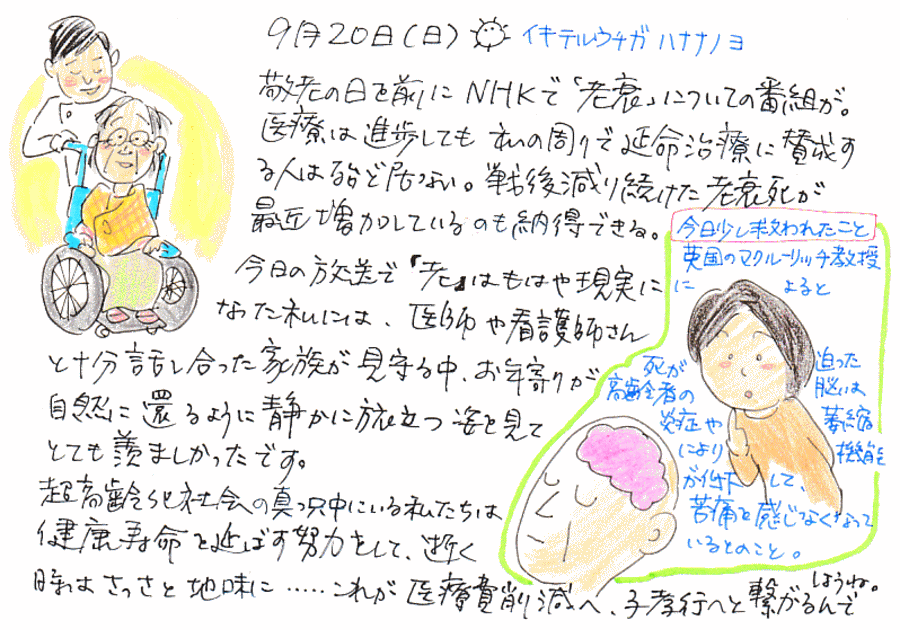 9月20日(日) イキテルウチガ ハナナノヨ
敬老の日を前にNHKで「老衰」についての番組が。
医療は進歩しても私の周りで延命治療に賛成す
る人は殆ど居ない。戦後減り続けた老衰死が
最近増加しているのも納得できる。
今日の放送で「老」はもはや現実に
なった私には、医師や看護師さん
と十分話し合った家族が見守る中、お年寄りが
自然に還るように静かに旅立つ姿を見て
とても羨ましかったです。
超高齢化社会への真っ只中にいる私たちは
健康寿命を延ばす努力をして、逝く
時はさっさと地味に……これが医療費削減へ、子孝行へと繋がるんで
しょうね。
今日少し救われたこと
英国のマクルーリッチ教授
に よると
死が 迫った
高齢者の 脳は
炎症や 萎縮
により 機能
が低下 して、
苦痛を感じなくなって
いるとのこと。